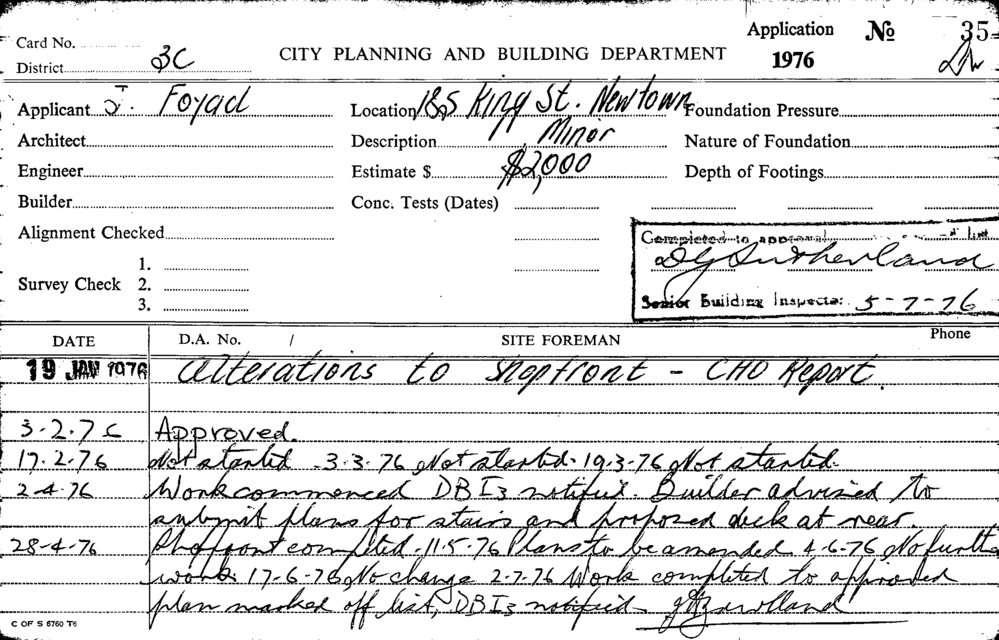 Card No. Application No 35
District 3C CITY PLANNING AND BUILDING DEPARTMENT 1976
Applicant J. Foyad Location 185 King St. Newtown Foundation Pressure
Architect Description Minor Nature of Foundation
Engineer Estimate $ $2,000 Depth of Footings
Builder Conc. Tests (Dates)
Alignment Checked
Completed to approval list
Survey Check 1. 2. 3.
D G Sutherland
Senior Building Inspector 5-7-76
DATE D.A. No. / SITE FOREMAN Phone
19 JAN 1976 Alterations to shopfront - CHO Report.
3-2-76 Approved.
17.2.76 Not started 3-3-76 Not started. 19.3-76 Not started.
2-4-76 Work commenced DBI3 notified. Builder advised to
submit plans for stairs and proposed deck at rear.
28-4-76 Shopfront completed - 11.5-76 Plans to be amended 4-6-76 No further
work. 17-6-76 No change 2-7-76 Work completed to approved
plan marked off list, DBI3 notified
C OF S 6760 T6